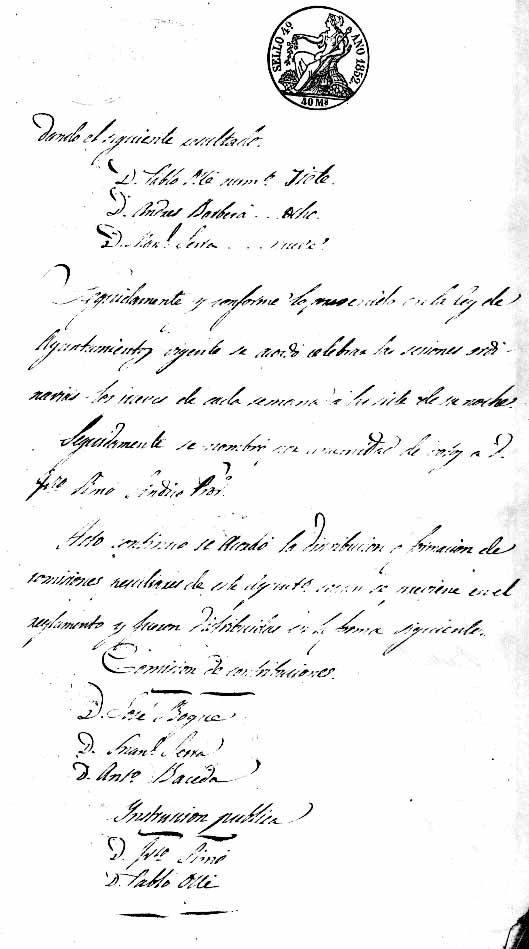 SELLO 4º AÑO 1852.
40 Ms
dando el siguiente resultado.
D. Pablo Ollé num.º Siete.
D. Andres Barberá .. ocho.
D. Man.l Serra .... nueve.
Seguidamente y conforme lo prevenido en la ley de
Ayuntamientos vigente se acordó celebrar las sesiones ordi-
narias los jueves de cada semana á las siete de su noche.
Seguidamente se nombró por unanimidad de votos a D.
Fr.co Simó Sindico Pror.
Acto continuo se Acordó la distribucion o formacion de
comisiones de este Ayunt.º segun se previene en el
reglamento y fueron distribuidas en la forma siguiente.
Comision de contribuciones.
D. José Boque
D. Man.l Serra
D. Ant.º Baceda
Instrucion publica
D. Fr.co Simó
D. Pablo Ollé